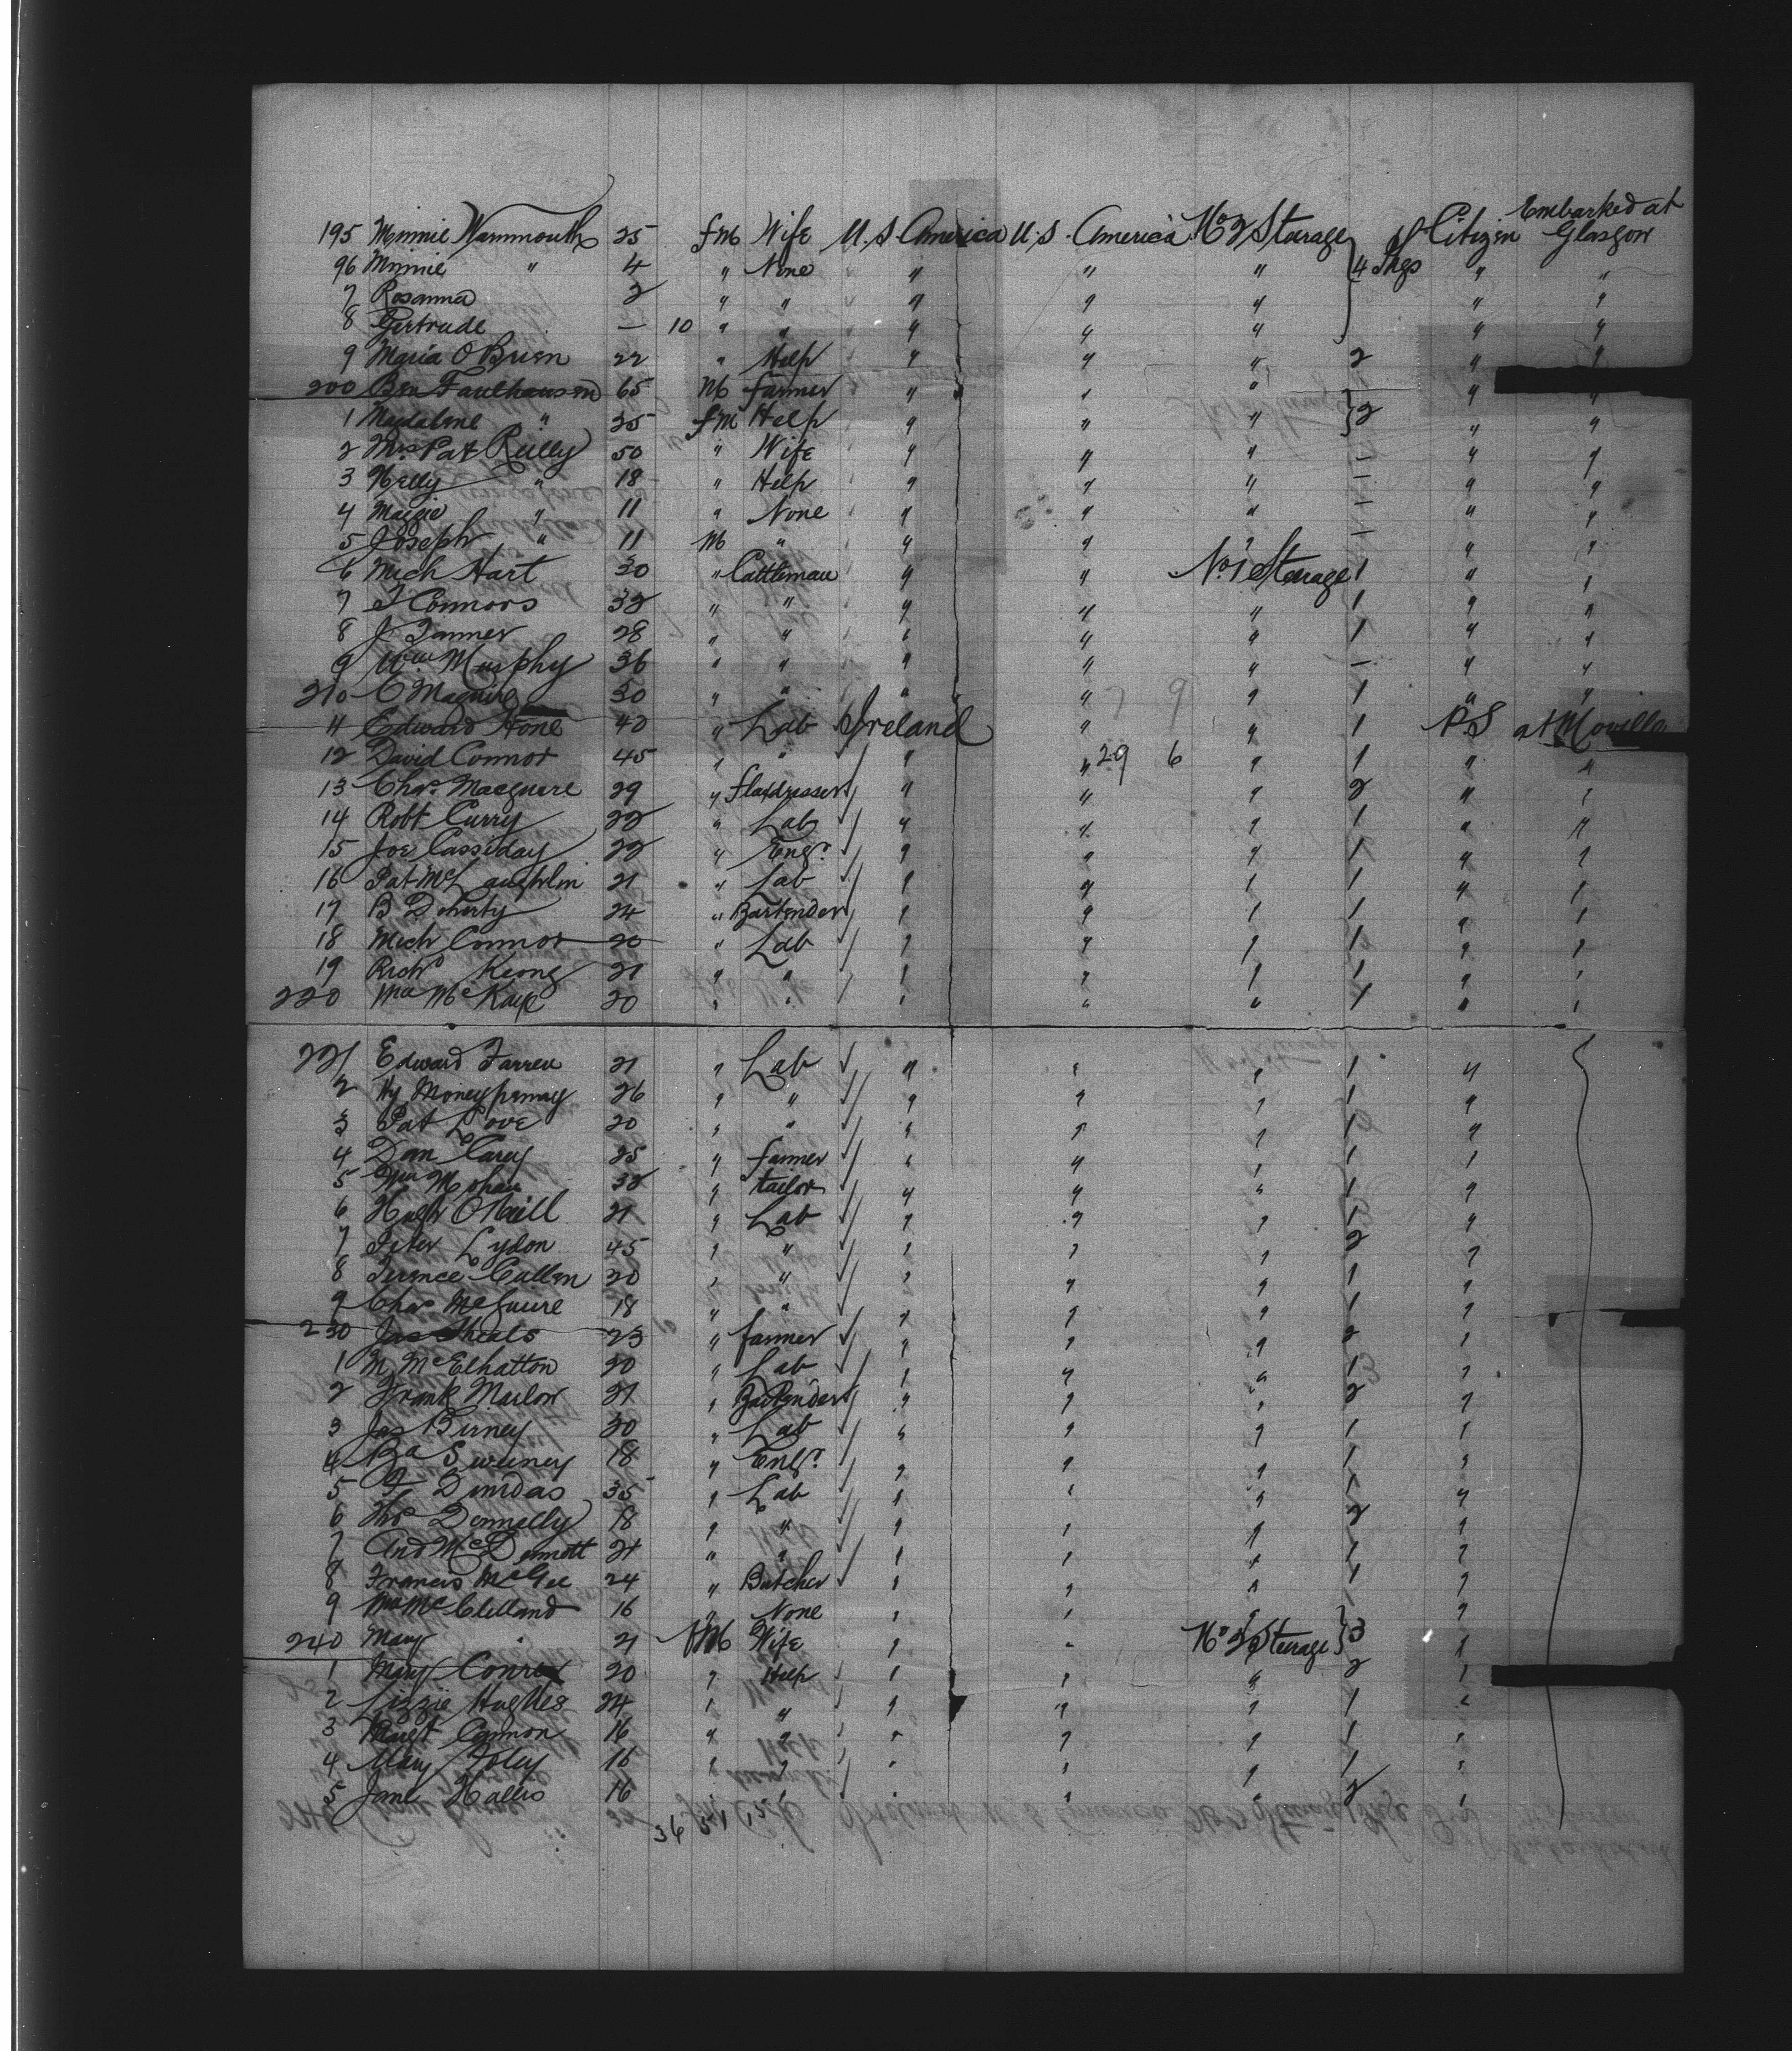 Embarked at
195 Minnie Wammouth 25 fM Wife U.S. America U.S. America No 2 Stearage Citizen Glasgow
96 Minnie " 4 " None " " " 4 Pkgs " "
7 Rosanna 2 " " " " " " "
8 Gertrude — 10 " " " " " " "
9 Maria O Brien 22 " Help " " " 2 " "
200 Ben Faulhausen 65 M farmer " " " " "
1 Magdalene " 25 fM Help " " " 2 " "
2 Mrs Pat Reilly 50 " Wife " " " — " "
3 Nelly " 18 " Help " " " — " "
4 Maggie " 11 " None " " " — " "
5 Joseph " 11 M " " " " — " "
6 Mich Hart 30 " Cattleman " " No 1 Stearage 1 " "
7 J Connors 32 " " " " " 1 " "
8 J Tanner 28 " " " " " 1 " "
9 Wm Murphy 36 " " " " " — " "
210 C Maguire 30 " " " " " 1 " "
11 Edward Hone 40 " Lab Ireland " " 1 P S at Moville
12 David Connor 45 " " " " 29 6 " 1 " "
13 Chas. Macguere 29 " flaxdresser " " " 2 " "
14 Robt Curry 22 " Lab " " " 1 " "
15 Joe Cassiday 22 " Engr. " " " 1 " "
16 Pat McLaughlin 21 " Lab " " " 1 " "
17 B Doherty 24 " Bartender " " " 1 " "
18 Mich Connor 20 " Lab " " " 1 " "
19 Richd Keong 21 " " " " " 1 " "
220 McKaye 20 " " " " " 1 " "
221 Edward Farren 21 " Lab " " " 1 "
2 Hy Moneypenny 26 " " " " " 1 "
3 Pat Love 20 " " " " " 1 "
4 Dan Carey 25 " farmer " " " 1 "
5 Wm Mohan 32 " tailor " " " 1 "
6 Hugh O Neill 21 " Lab " " " 1 "
7 Peter Lydon 45 " " " " " 2 "
8 Terence Cullen 20 " " " " " 1 "
9 Chas McGuire 18 " " " " " 1 "
230 Jas Sheals 23 " farmer " " " 2 "
1 M McElhatton 20 " Lab " " " 1 "
2 Frank Marlow 21 " Bartender " " " 2 "
3 Jas Birney 30 " Lab " " " 1 "
4 Sweeney 18 " Engr. " " " 1 "
5 Dundas 35 " Lab " " " 1 "
6 Thos Donnelly 18 " " " " " 2 "
7 And McDermott 21 " " " " " 1 "
8 Francis McGee 24 " Butcher " " " 1 "
9 Wm McClelland 16 " None " " " "
240 Mary " 21 fM Wife " " No 2 Stearage 3 "
1 Mary 20 " Help " " " 2 "
2 Lizzie Hughes 24 " " " " " 1 "
3 Margt Cannon 16 " " " " " 1 "
4 Mary Foley 16 " " " " " 1 "
5 Jane Hallis 16 " " " " " 2 "
36